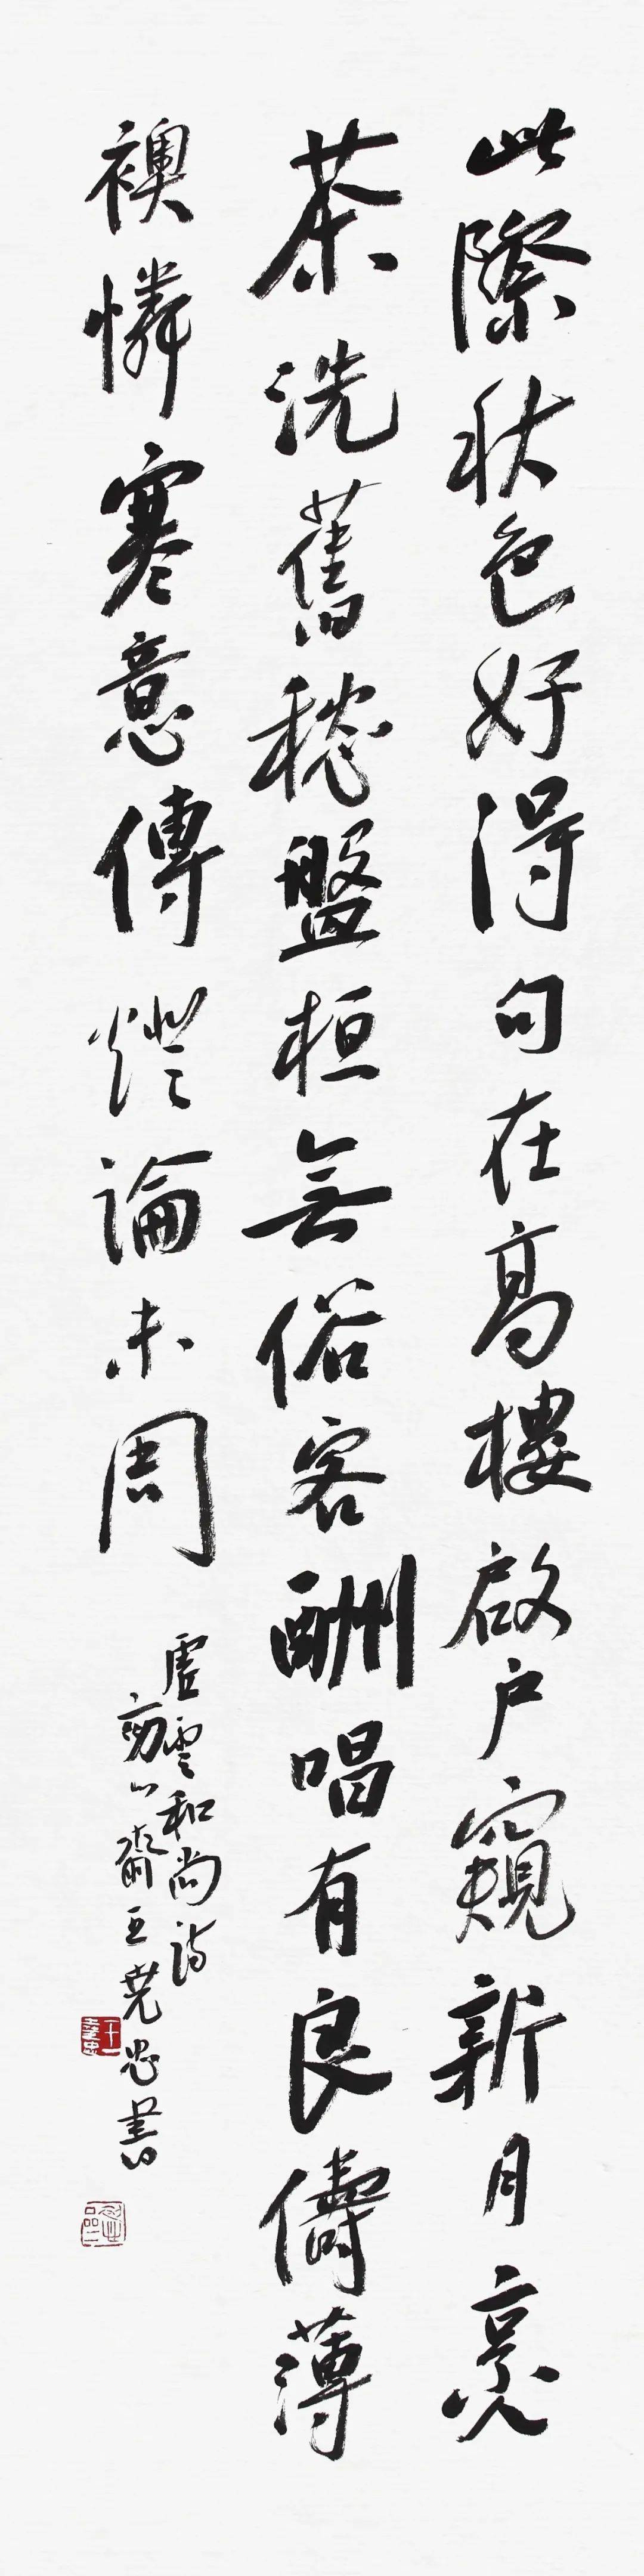 此際秋色好得句在高樓啟戶窺新月烹
茶洗舊愁盤桓無俗客酬唱有良儔薄
襖憐寒意傳燈論未周
虛雲和尚詩
齋王堯忠書